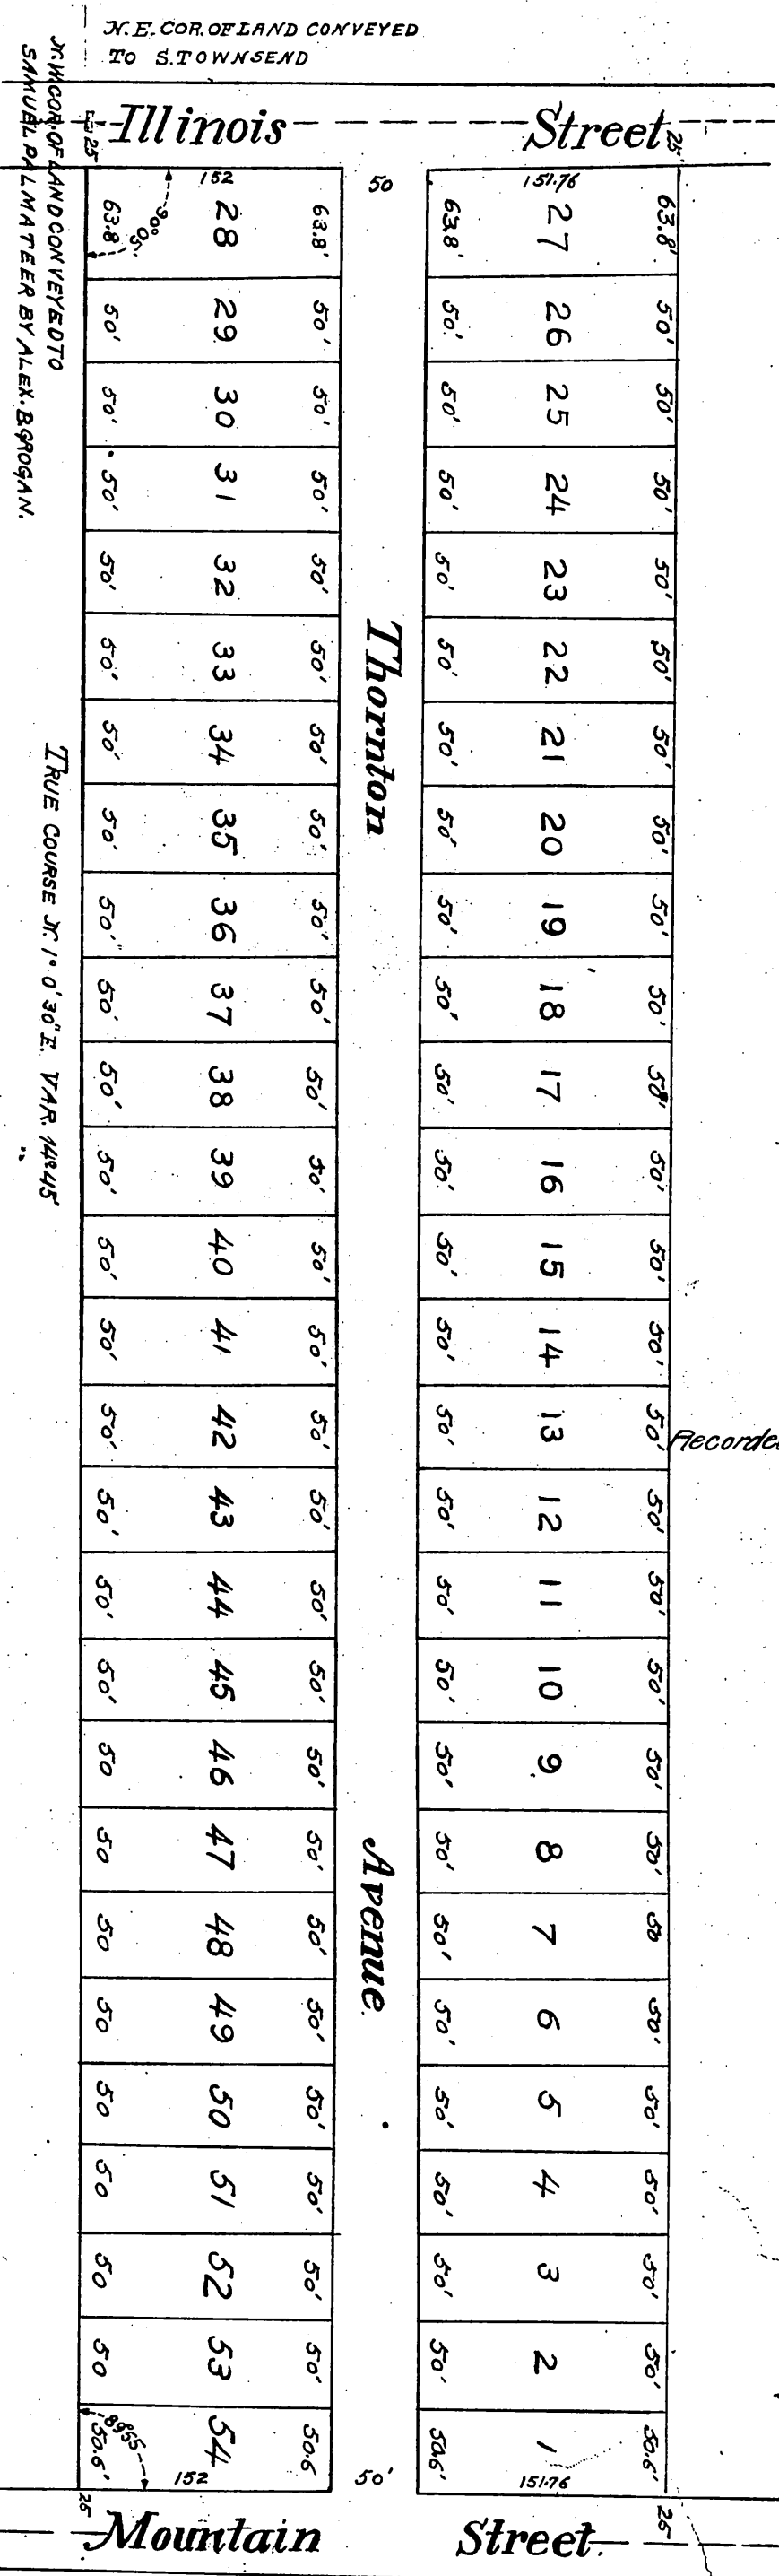 N.E. COR. OF LAND CONVEYED
TO S. TOWNSEND
N.W. COR. OF LAND CONVEYED TO
SAMUEL PALMATEER BY ALEX. B. GROGAN.
Illinois Street
25 25'
152 50 151.76
90° 05'
63.8 28 63.8' 63.8' 27 63.8'
50' 29 50' 50' 26 50'
50' 30 50' 50' 25 50'
50' 31 50' 50' 24 50'
50' 32 50' 50' 23 50'
50' 33 50' 50' 22 50'
50' 34 50' 50' 21 50'
50' 35 50' 50' 20 50'
50' 36 50' 50' 19 50'
50' 37 50' 50' 18 50'
50' 38 50' 50' 17 50'
50' 39 50' 50' 16 50'
50' 40 50' 50' 15 50'
50' 41 50' 50' 14 50'
50' 42 50' 50' 13 50'
50' 43 50' 50' 12 50'
50' 44 50' 50' 11 50'
50' 45 50' 50' 10 50'
50 46 50' 50' 9 50'
50 47 50' 50' 8 50'
50 48 50' 50' 7 50
50 49 50' 50' 6 50'
50 50 50' 50' 5 50'
50 51 50' 50' 4 50'
50 52 50' 50' 3 50'
50 53 50' 50' 2 50'
50.6' 54 50.6 50.6' 1 50.6'
Thornton Avenue.
TRUE COURSE N. 1° 0' 30" E. VAR. 14°45'
Recorde
89°55
152 50' 151.76
25 25
Mountain Street.